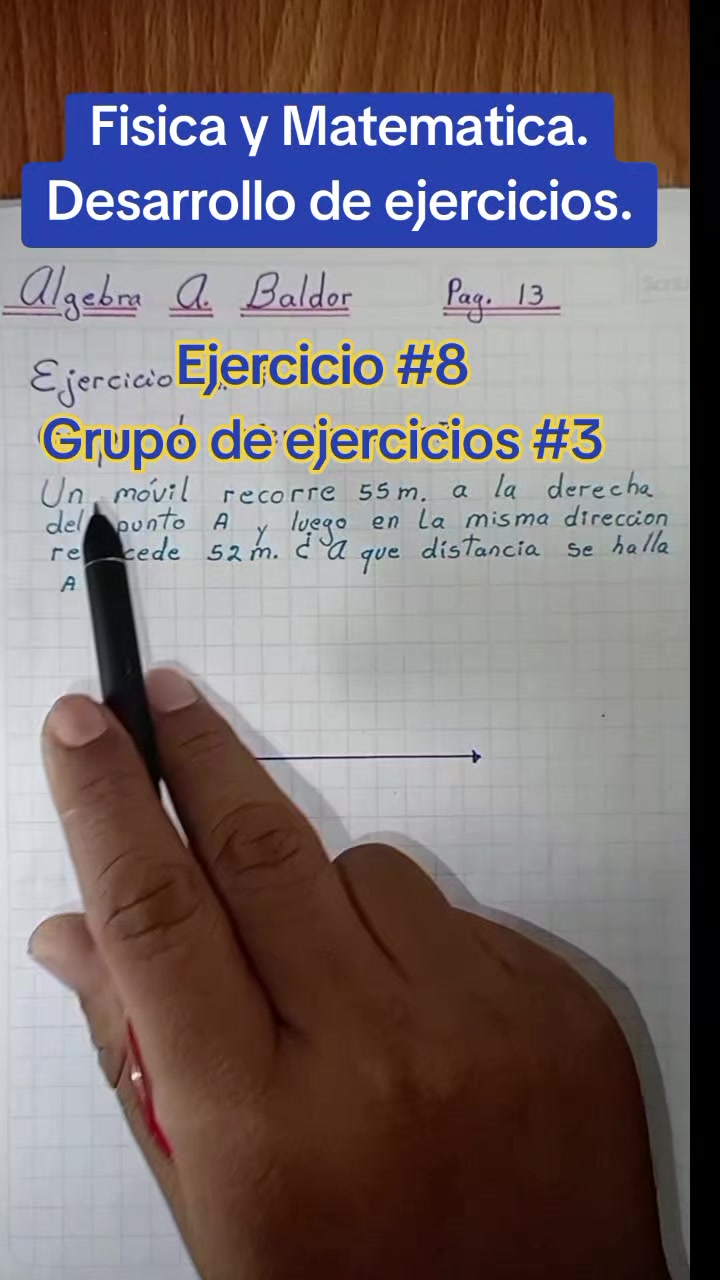 Fisica y Matematica.
Desarrollo de ejercicios.
Algebra A. Baldor Pag. 13
Ejercicio
Ejercicio #8
Grupo de ejercicios #3
Un móvil recorre 55 m. a la derecha
del punto A y luego en La misma direccion
52 m. ¿ a que distancia se halla
A